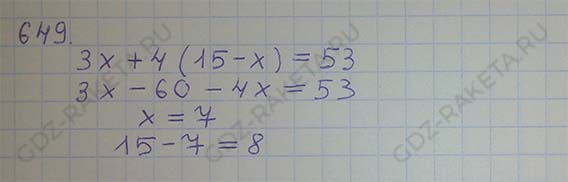 649.
3x + 4 (15 - x) = 53
3x - 60 - 4x = 53
x = 7
15 - 7 = 8
GDZ-RAKETA.RU
GDZ-RAKETA.RU
GDZ-RAKETA.RU
GDZ-RAKETA.RU